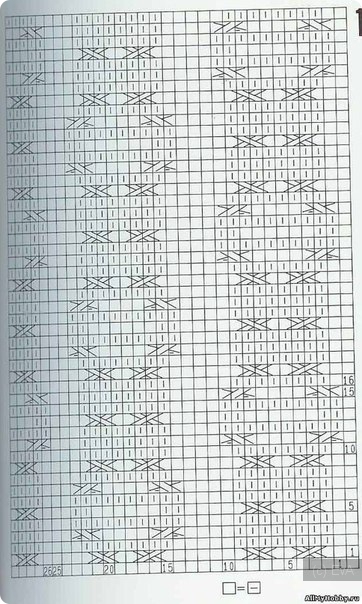 1
16
15
10
5
1
2625 20 15 10 5
□=⊟
AllMyHobby.ru